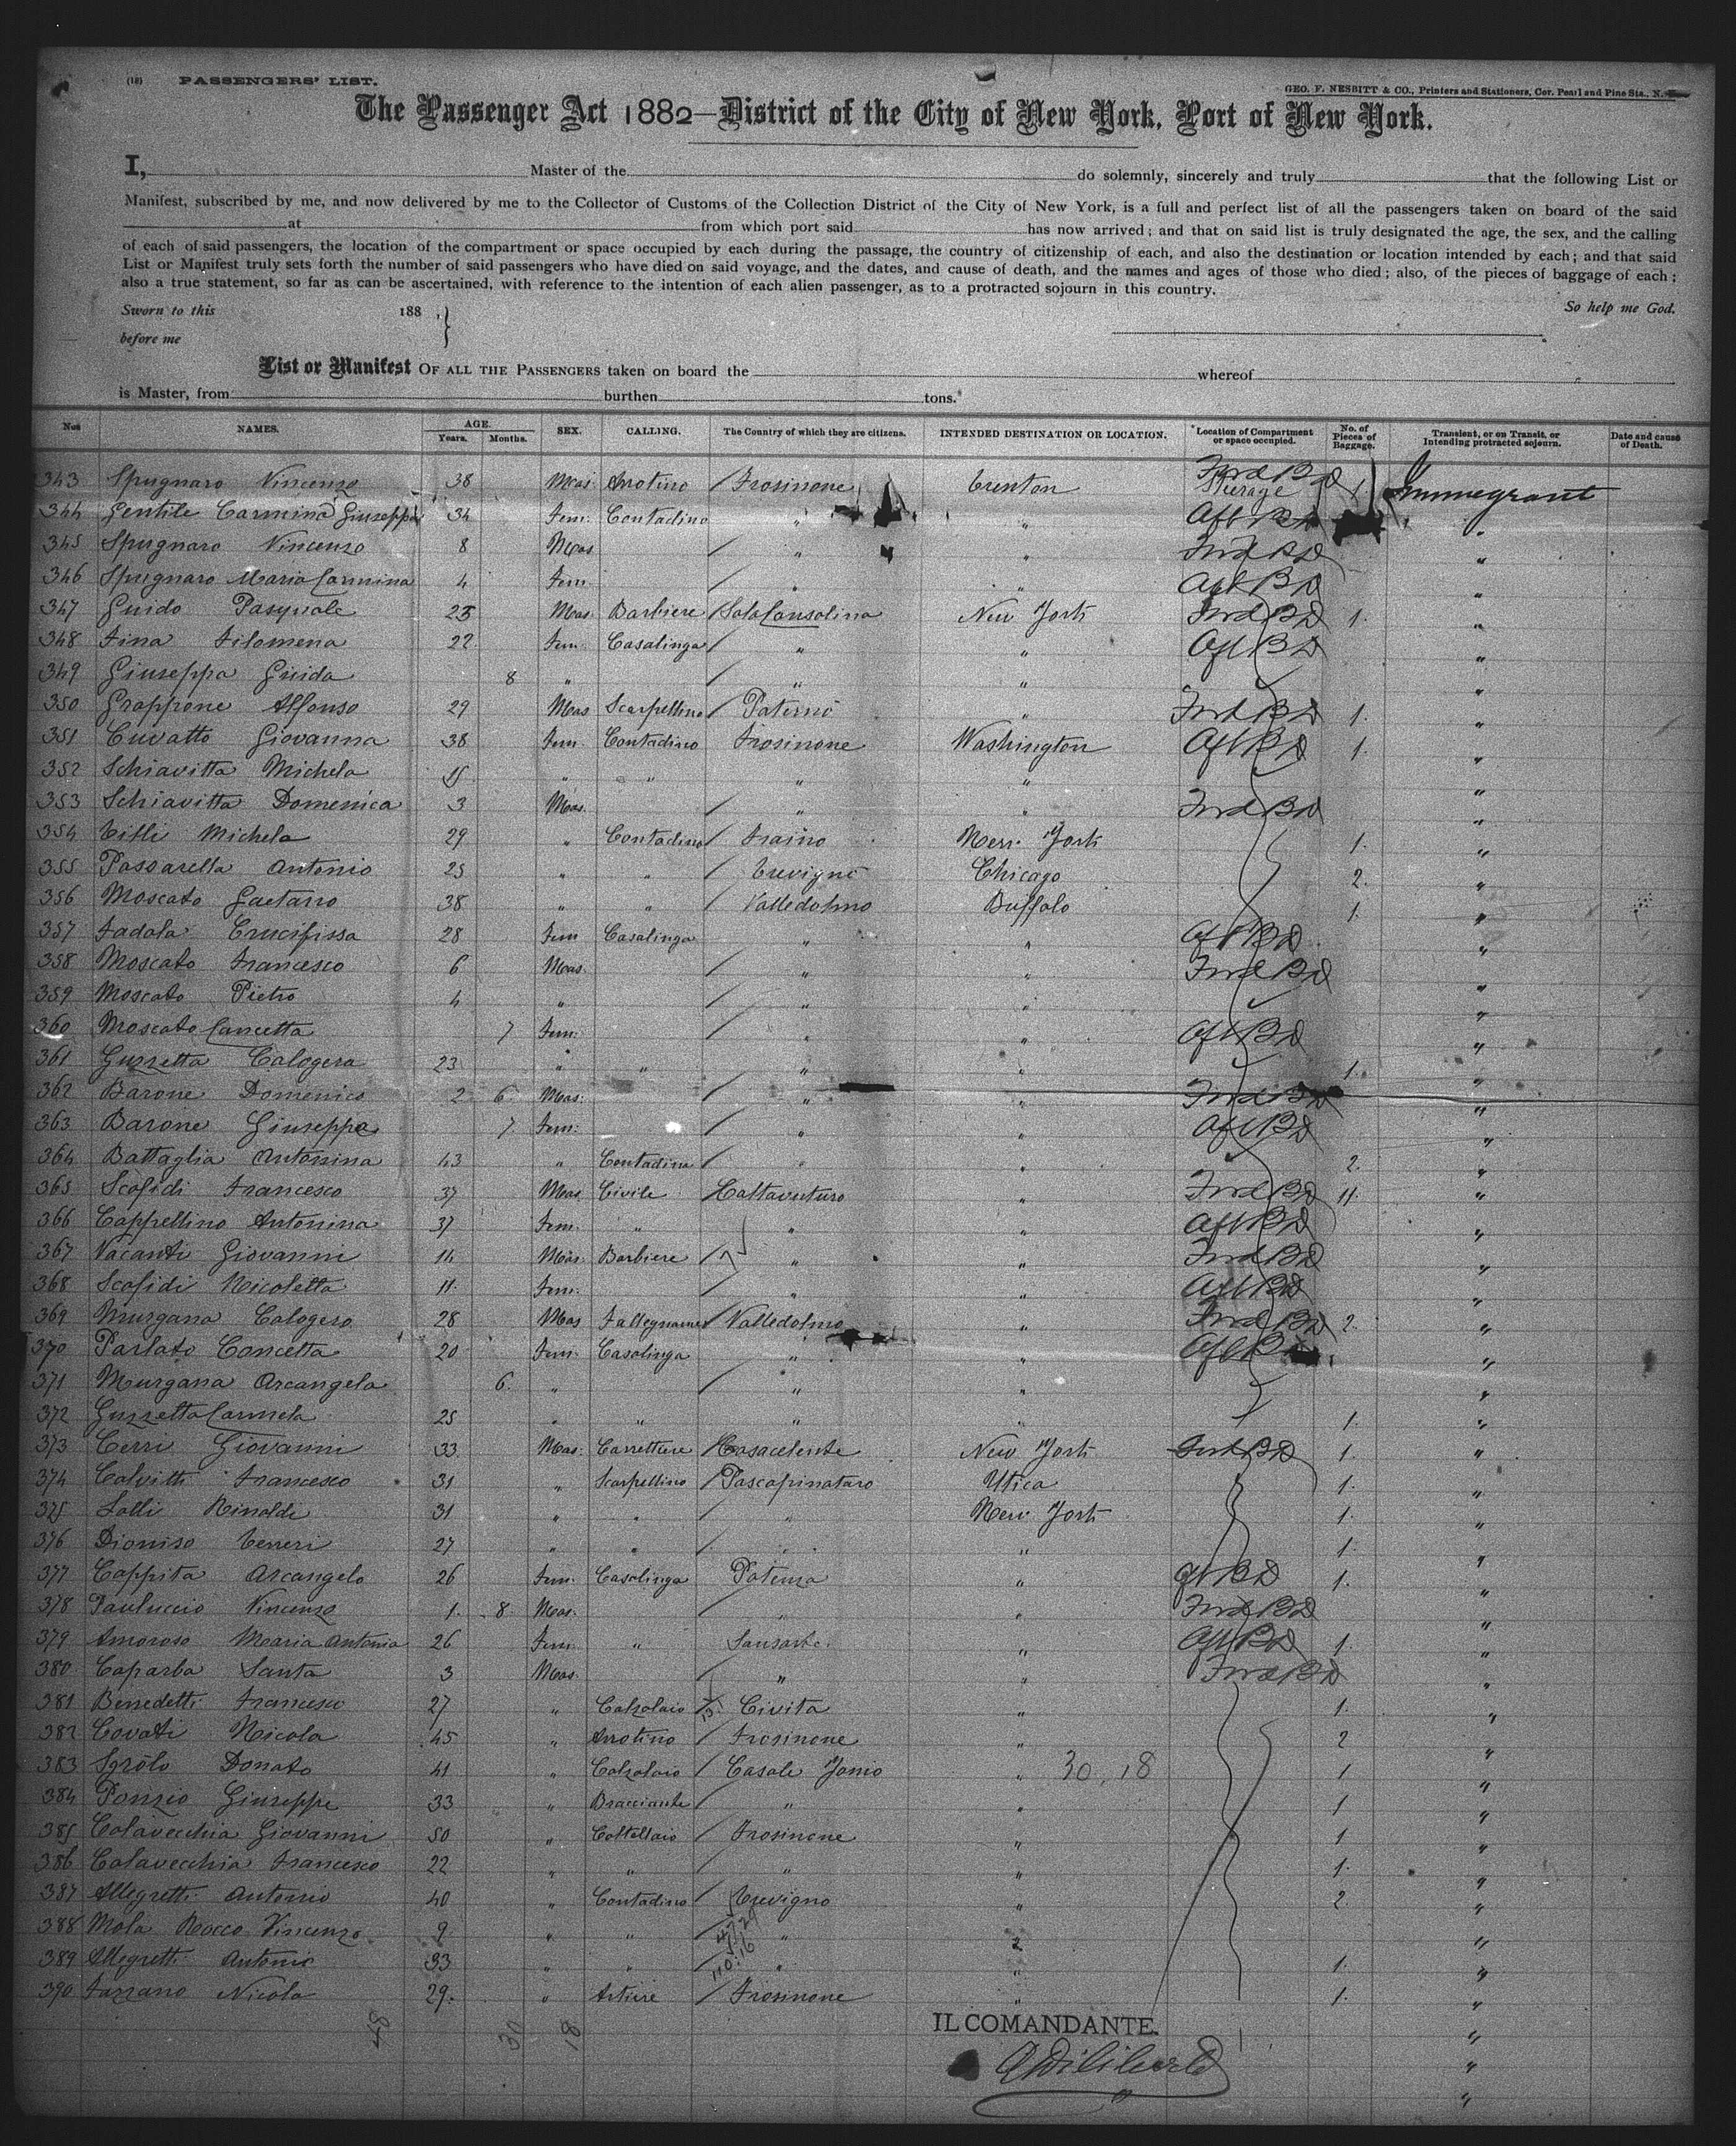 (12) PASSENGERS' LIST.
GEO. F. NESBITT & CO., Printers and Stationers, Cor. Pearl and Pine Sts., N.
The Passenger Act 1882—District of the City of New York, Port of New York.
I, Master of the do solemnly, sincerely and truly that the following List or
Manifest, subscribed by me, and now delivered by me to the Collector of Customs of the Collection District of the City of New York, is a full and perfect list of all the passengers taken on board of the said
at from which port said has now arrived; and that on said list is truly designated the age, the sex, and the calling
of each of said passengers, the location of the compartment or space occupied by each during the passage, the country of citizenship of each, and also the destination or location intended by each; and that said
List or Manifest truly sets forth the number of said passengers who have died on said voyage, and the dates, and cause of death, and the names and ages of those who died; also, of the pieces of baggage of each;
also a true statement, so far as can be ascertained, with reference to the intention of each alien passenger, as to a protracted sojourn in this country.
Sworn to this 188 , } So help me God.
before me
List or Manifest OF ALL THE PASSENGERS taken on board the whereof
is Master, from burthen tons.
Nos NAMES. AGE. Years. Months. SEX. CALLING. The Country of which they are citizens. INTENDED DESTINATION OR LOCATION. Location of Compartment or space occupied. No. of Pieces of Baggage. Transient, or on Transit, or Intending protracted sojourn. Date and cause of Death.
343 Spugnaro Vincenzo 38 Mas. Arrotino Frosinone Trenton Frd BD Steerage 1 Immegrant
344 Gentile Carmina Giuseppa 34 Fem. Contadino " " Aft BD "
345 Spugnaro Vincenzo 8 Mas " " Frd BD "
346 Spugnaro Maria Carmina 4 Fem. " " Aft BD "
347 Guido Pasquale 25 Mas. Barbiere Sala Consolina New York Frd BD 1. "
348 Fina Filomena 22 Fem. Casalinga " " Aft BD "
349 Giuseppa Guida 8 " " " "
350 Grappone Alfonso 29 Mas Scarpellino Paterno " Frd BD 1. "
351 Cuvatto Giovanna 38 Fem Contadino Frosinone Washington Aft BD 1. "
352 Schiavitta Michela 15 " " " " "
353 Schiavitta Domenica 3 Mas. " " Frd BD "
354 Titli Michela 29 " Contadino Fraino New York 1. "
355 Passarella Antonio 25 " " Trevigno Chicago 2. "
356 Moscato Gaetano 38 " " Valledolmo Buffalo 1. "
357 Fadala Crucifissa 28 Fem Casalinga " " Aft BD "
358 Moscato Francesco 6 Mas. " " Frd BD "
359 Moscato Pietro 4 " " " "
360 Moscato Concetta 7 Fem. " " Aft BD "
361 Guzzetta Calogera 23 " " " " 1. "
362 Barone Domenico 2 6 Mas. " " Frd BD "
363 Barone Giuseppa 7 Fem. " " Aft BD "
364 Battaglia Antonina 43 " Contadina " " 2. "
365 Scofidi Francesco 37 Mas. Civile Caltavuturo " Frd BD 11. "
366 Cappellino Antonina 37 Fem. " " " Aft BD "
367 Vacanti Giovanni 14 Mas. Barbiere " " Frd BD "
368 Scofidi Nicoletta 11. Fem. " " Aft BD "
369 Murgana Calogero 28 Mas Fallegname Valledolmo " Frd BD 2. "
370 Parlato Concetta 20 Fem. Casalinga " " Aft BD "
371 Murgana Arcangela 6. " " " "
372 Guzzetta Carmela 25 " " " " 1. "
373 Cerri Giovanni 33 Mas. Carrettiere Casacelente New York Frd BD 1. "
374 Calvitti Francesco 31 " Scarpellino Pascopinataro Utica 1. "
375 Lalli Rinaldi 31 " " " New York 1. "
376 Dioniso Veneri 27 " " " " 1. "
377 Coppita Arcangelo 26 Fem. Casalinga Potenza " Aft BD 1. "
378 Pauluccio Vincenzo 1. 8 Mas. " " Frd BD "
379 Amoroso Maria Antonia 26 Fem. " " Aft BD 1. "
380 Caparba Santa 3 Mas. " " Frd BD "
381 Benedetti Francesco 27 " Calzolaio Civita " 1. "
382 Covati Nicola 45 " Arrotino Frosinone " 2 "
383 Sgrolo Donato 41 " Calzolaio Casale " 30, 18 1 "
384 Ponzio Giuseppe 33 " Bracciante " " 1 "
385 Colavecchia Giovanni 50 " Coltellaio Frosinone " 1 "
386 Colavecchia Francesco 22 " " " " 1. "
387 Allegretti Antonio 40 " Contadino Trevigno " 2. "
388 Mola Rocco Vincenzo 9 " " " " "
389 Allegretti Antonio 33 " " " " 1. "
390 Fazzano Nicola 29. " Frosinone " 1. "
48 30 18
IL COMANDANTE.